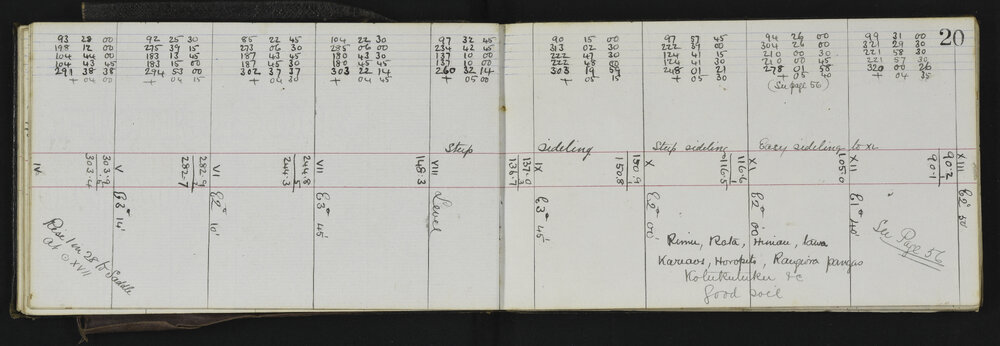 20
93 28 00
198 12 00
104 44 00
104 43 45
291 38 38
+ 04
92 25 30
275 39 15
183 13 45
183 15 00
294 53 00
+ 04 15
85 22 45
273 06 30
187 43 45
187 45 30
302 37 37
+ 04 30
104 22 30
285 06 00
180 43 30
180 45 45
303 22 14
+ 04 45
97 32 45
234 42 45
137 10 00
137 10 00
260 32 14
+ 05 00
90 15 00
313 02 30
222 47 30
222 48 00
303 19 59
+ 05 15
97 87 45
222 39 00
124 41 15
124 41 30
248 01 21
+ 05 30
94 26 00
304 26 00
210 00 30
210 00 45
278 01 58
+ 05 40
(See page 56)
99 31 00
321 29 30
221 58 30
221 57 30
320 00 26
+ 04 35
Steep sideling Steep sideling Easy sideling to XII
IV
303.9
303.4
V
E3° 14'
282.9
282.7
VI
E2° 10'
244.8
244.3
VII
E3° 45'
148.3
VIII
Level
137.0
136.7
IX
E3° 45'
150.9
150.8
X
E2° 00'
116.6
116.5
XI
E2° 00'
105.0
XII
E1° 40'
90.2
90.1
XIII
E2° 50'
Rise 1 in 28 to Saddle
at ⊙ XVII
Rimu, Rata, Hinau, Tawa
Karaos, Horopito, Rangiora pangas
Kotukutuku &c
Good soil
See Page 56